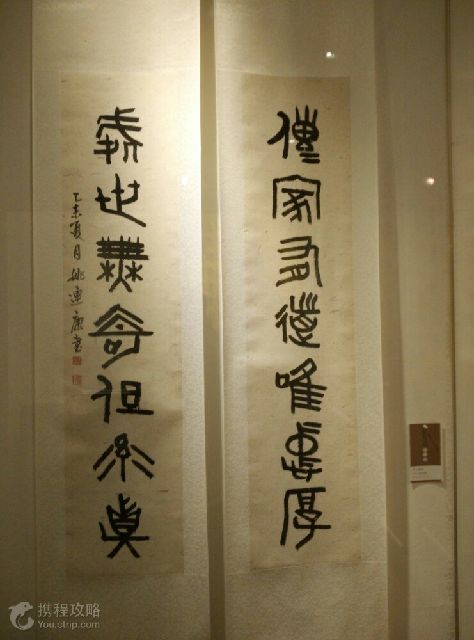 傳家有道唯存厚
處世無奇但率真
乙未夏月姚連康書
携程攻略
You.ctrip.com